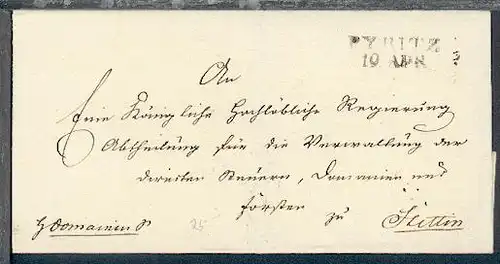 PYRITZ
19 APR
An
Eine Königliche Hochlöbliche Regierung
Abtheilung für die Verwaltung der
directen Steuern, Domainen und
Forsten
zu
Stettin
25